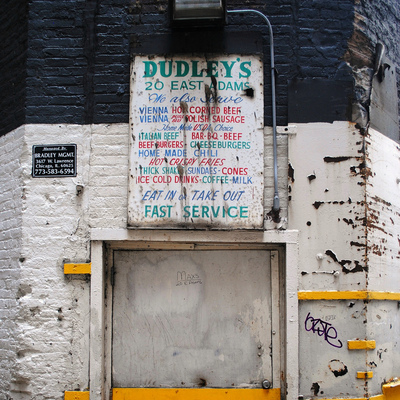 DUDLEY'S
20 EAST ADAMS
We also Serve
VIENNA HOT CORNED BEEF
VIENNA POLISH SAUSAGE
Home Made U.S.D.A. Choice
ITALIAN BEEF BAR-B-Q BEEF
BEEF BURGERS CHEESEBURGERS
HOME MADE CHILI
HOT CRISPY FRIES
THICK SHAKES SUNDAES - CONES
ICE COLD DRINKS - COFFEE - MILK
EAT IN or TAKE OUT
FAST SERVICE
Managed By
BRADLEY MGMT.
3617 W. Lawrence
Chicago, IL 60625
773-583-6594